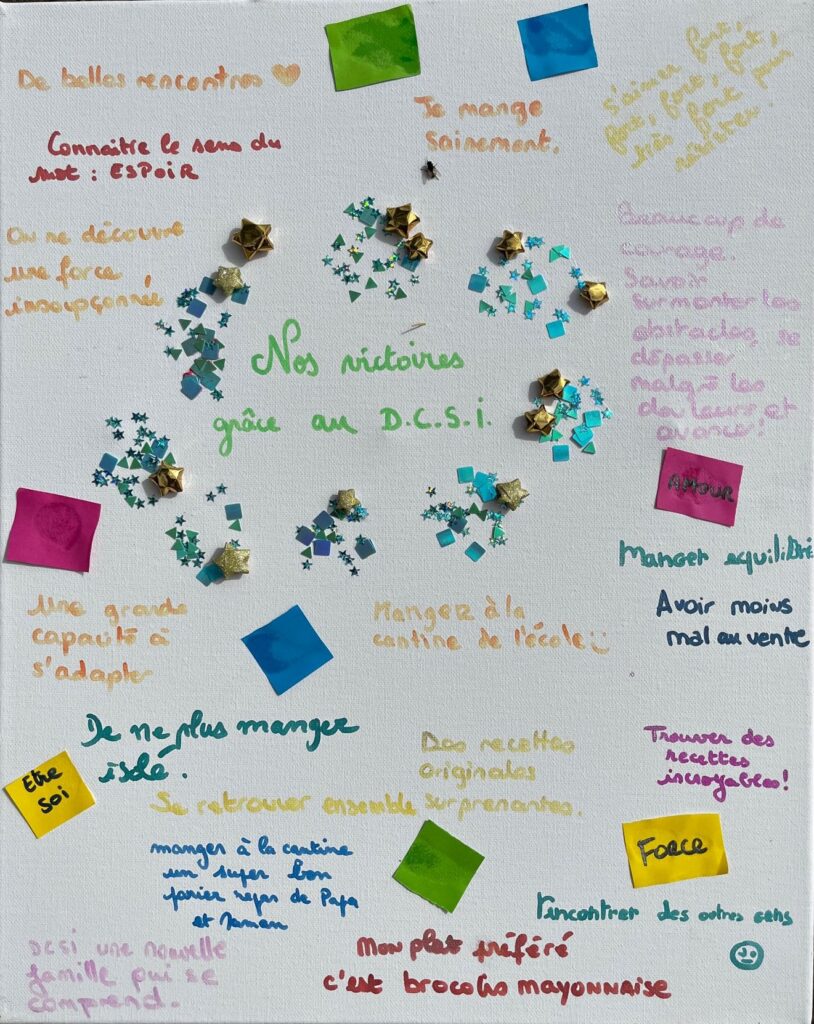 De belles rencontres
Je mange
sainement.
s'aimer fort,
fort, fort, fort,
très fort pour
résister.
Connaitre le sens du
mot : ESPOIR
On ne découvre
une force
insoupçonnée
Beaucoup de
courage.
Savoir
surmonter les
obstacles, se
dépasser
malgré les
douleurs et
avancer!
Nos victoires
grâce au D.C.S.i.
AMOUR
Manger equilibré
Avoir moins
mal au ventre
Une grande
capacité à
s'adapter
Manger à la
cantine de l'école
De ne plus manger
isolé.
Des recettes
originales
surprenantes.
Trouver des
recettes
incroyables!
Etre
soi
Se retrouver ensemble
manger à la cantine
un super bon
panier repas de Papa
et Maman
FORCE
rencontrer des autres gens
DCSI une nouvelle
famille qui se
comprend.
Mon plat préféré
c'est brocolis mayonnaise